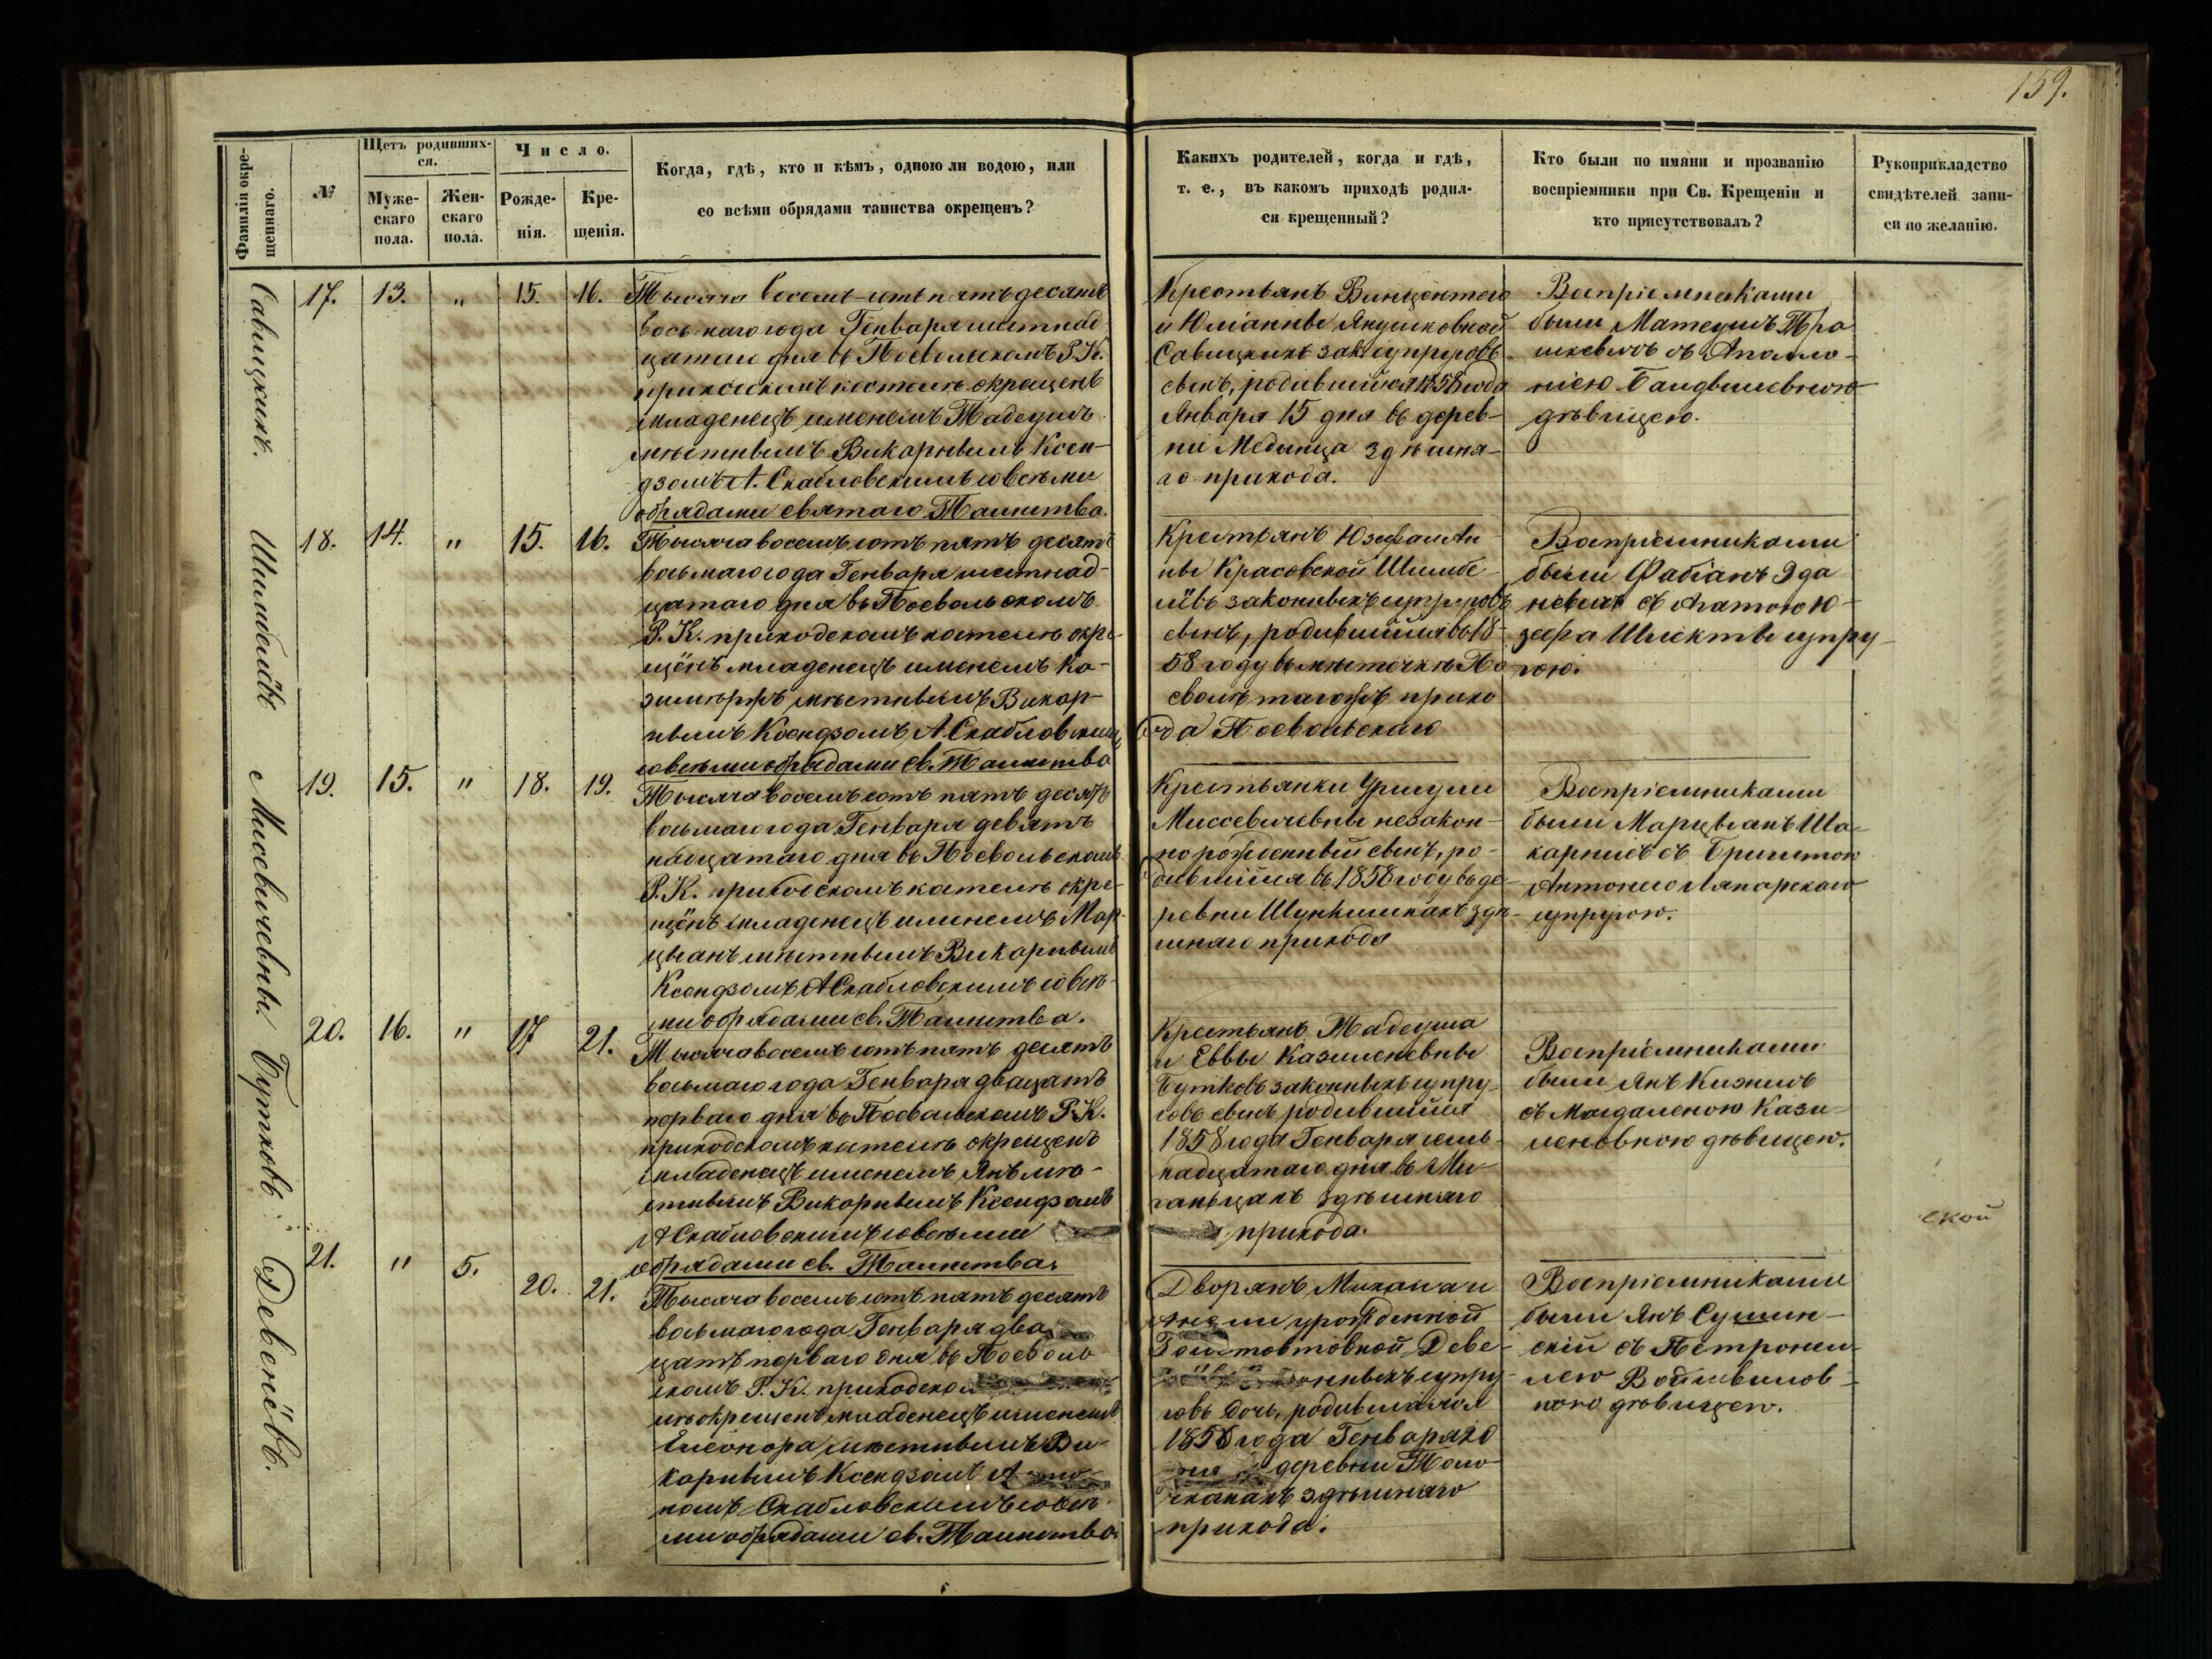 159.
Фамилiи окре-
щеннаго.
№
Щетъ родивших-
ся.
Муже-
скаго
пола.
Жен-
скаго
пола.
Число.
Рожде-
нiя.
Кре-
щенiя.
Когда, гдѣ, кто и кѣмъ, одною ли водою, или
со всѣми обрядами таинства окрещенъ?
Какихъ родителей, когда и гдѣ,
т. е., въ какомъ приходѣ родил-
ся крещенный?
Кто были по имяни и прозванiю
воспрiемники при Св. Крещенiи и
кто присутствовалъ?
Рукоприкладство
свидѣтелей запи-
си по желанiю.
Савицкихъ.
17. 13. " 15. 16.
Тысяча восемь-сотъ пятъ десятъ
восьмаго года Генваря шестнад-
цатаго дня въ Посвольскомъ Р. К.
приходскомъ костелѣ окрещенъ
младенецъ именемъ Тадеушъ
мѣстнымъ Викарнымъ Ксен-
дзомъ А. Скабловскимъ со всѣми
обрядами святаго Таинства.
Крестьянъ Винцентего
и Юліанны Янушковной
Савицкихъ зак. супруговъ
сынъ, родившійся 1858 года
Января 15 дня въ дерев-
ни Медынца здѣшня-
го прихода.
Воспріемниками
были Матеушъ Тра
шкевичъ съ Аполло-
нiею
дѣвицею.
18. 14. " 15. 16.
Тысяча восемъ сотъ пятъ десятъ
восьмаго года Генваря шестнад-
цатаго дня въ Посвольскомъ
Р. К. приходскомъ костелѣ окре-
щёнъ младенецъ именемъ Ка-
зимѣръ мѣстнымъ Викар-
нымъ Ксендзомъ А. Скабловскимъ
со всѣми обрядами св. Таинства
Крестьянъ Юзефа и Ан
ны Красовской
законныхъ супруговъ
сынъ, родившійся въ 18-
58 году въ мѣстечкѣ По
своль тагожъ прихо
да Посвольскаго
Воспріемниками
были Фабіанъ
съ Агатою Ю-
зефа супру-
гою.
Мисевичевны
19. 15. " 18. 19.
Тысяча восемъ сотъ пятъ десятъ
восьмаго года Генваря девятъ
надцатаго дня въ Посвольскомъ
Р. К. приходскомъ костелѣ окре-
щёнъ младенецъ именемъ Мар-
цыанъ мѣстнымъ Викарнымъ
Ксендзомъ А Скабловскимъ со всѣ-
ми обрядами св. Таинства.
Крестьянки Уршули
Миссевичевны незакон-
но рожденный сынъ, ро-
дившійся въ 1858 году въ де-
ревни здѣ-
шняго прихода
Воспріемниками
были Марцыанъ
съ Бригитою
Антонего
супругою.
Бутковъ
20. 16. " 17 21.
Тысяча восемъ сотъ пятъ десятъ
восьмаго года Генваря двацатъ
перваго дня въ Посвольскомъ Р. К.
приходскомъ костелѣ окрещенъ
младенецъ именемъ Янъ мѣ-
стнымъ Викарнымъ Ксендзомъ
А Скабловскимъ со всѣми
обрядами св. Таинства.
Крестьянъ Тадеуша
и Еввы Казиленевны
Бутковъ законныхъ супру-
говъ сынъ родившійся
1858 года Генваря семь-
надцатаго дня въ Ми-
ганьцахъ здѣшняго
прихода.
Воспріемниками
были Янъ
съ Магдаленою Кази
леновною дѣвицею.
ской
Девенёвъ.
21. " 5. 20. 21.
Тысяча восемъ сотъ пятъ десятъ
восьмаго года Генваря два
цатъ перваго дня въ Посволь
скомъ Р. К. приходско
окрещенъ младенецъ именемъ
Елеонора мѣстнымъ Ви-
карнымъ Ксендзомъ
Скабловскимъ со всѣ-
ми обрядами св. Таинства.
Дворянъ Михала и
урожденной
Деве-
супру-
говъ дочь, родившаяся
1858 года Генваря 20
деревни
здѣшняго
прихода.
Воспріемниками
были Янъ Сушин-
скій съ Петронел-
лею
ною дѣвицею.